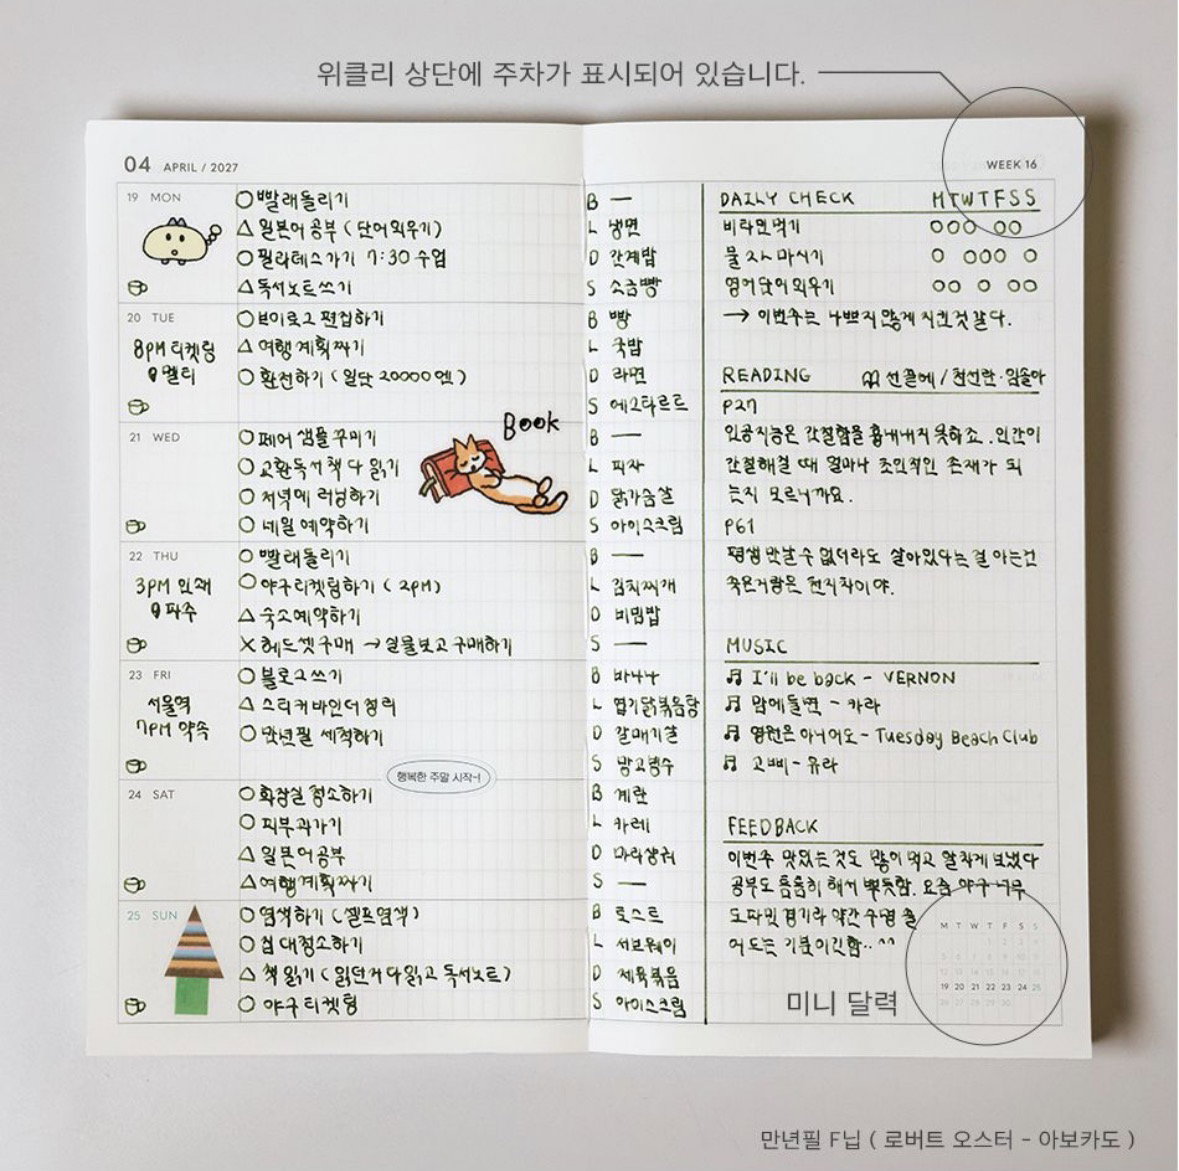 위클리 상단에 주차가 표시되어 있습니다.
04 APRIL / 2027
WEEK 16
19 MON
○ 빨래돌리기
△ 일본어 공부 ( 단어외우기 )
○ 필라테스가기 7:30 수업
△ 독서노트쓰기
20 TUE
8PM 티켓팅
멜티
○ 브이로그 편집하기
△ 여행계획짜기
○ 환전하기 ( 일단 20000엔 )
21 WED
○ 페어 샘플 꾸미기
○ 교환독서 책 다 읽기
○ 저녁에 러닝하기
○ 네일 예약하기
Book
22 THU
3PM 인쇄
파주
○ 빨래돌리기
○ 야구티켓팅하기 ( 2PM )
△ 숙소예약하기
× 헤드셋구매 → 실물보고 구매하기
23 FRI
서울역
7PM 약속
○ 블로그쓰기
△ 스티커바인더정리
○ 만년필 세척하기
행복한 주말 시작~!
24 SAT
○ 화장실 청소하기
○ 피부과가기
△ 일본어공부
△ 여행계획짜기
25 SUN
○ 염색하기 ( 셀프염색 )
○ 집 대청소하기
△ 책 읽기 ( 읽던거 다읽고 독서노트 )
○ 야구 티켓팅
B —
L 냉면
D 간계밥
S 소금빵
B 빵
L 국밥
D 라면
S 에그타르트
B —
L 피자
D 닭가슴살
S 아이스크림
B —
L 김치찌개
D 비빔밥
S —
B 바나나
L 엽기닭볶음탕
D 갈매기살
S 망고빙수
B 계란
L 카레
D 마라샹궈
S —
B 토스트
L 서브웨이
D 제육볶음
S 아이스크림
DAILY CHECK M T W T F S S
비타민먹기 ○○○ ○○
물 마시기 ○ ○○○ ○
영어단어외우기 ○○ ○ ○○
→ 이번주는 나쁘지 않게 지킨것 같다.
READING 선끝에 / 천선란·임솔아
P27
인공지능은 간절함을 흉내내지 못하죠. 인간이
간절해질 때 얼마나 초인적인 존재가 되
는지 모르니까요.
P61
평생 만날 수 없더라도 살아있다는 걸 아는건
죽은거랑은 천지차이야.
MUSIC
♫ I'll be back - VERNON
♫ 맘에들면 - 카라
♫ 영원은 아니어도 - Tuesday Beach Club
♫ 고삐 - 유라
FEEDBACK
이번주 맛있는 것도 많이 먹고 알차게 보냈다
공부도 틈틈히 해서 뿌듯함. 요즘 야구 너무
도파민 경기라 약간 수명 줄
어드는 기분이긴함.. ^^
M T W T F S S
1 2 3 4
5 6 7 8 9 10 11
12 13 14 15 16 17 18
19 20 21 22 23 24 25
26 27 28 29 30
미니 달력
만년필 F닙 ( 로버트 오스터 - 아보카도 )